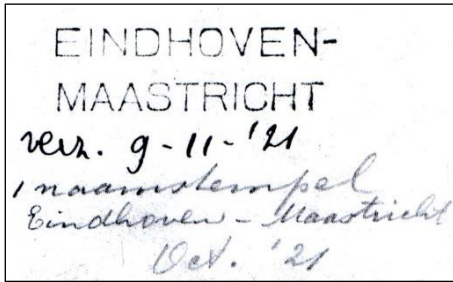 EINDHOVEN-
MAASTRICHT
verz. 9-11-'21
1 naamstempel
Eindhoven - Maastricht
Oct. '21